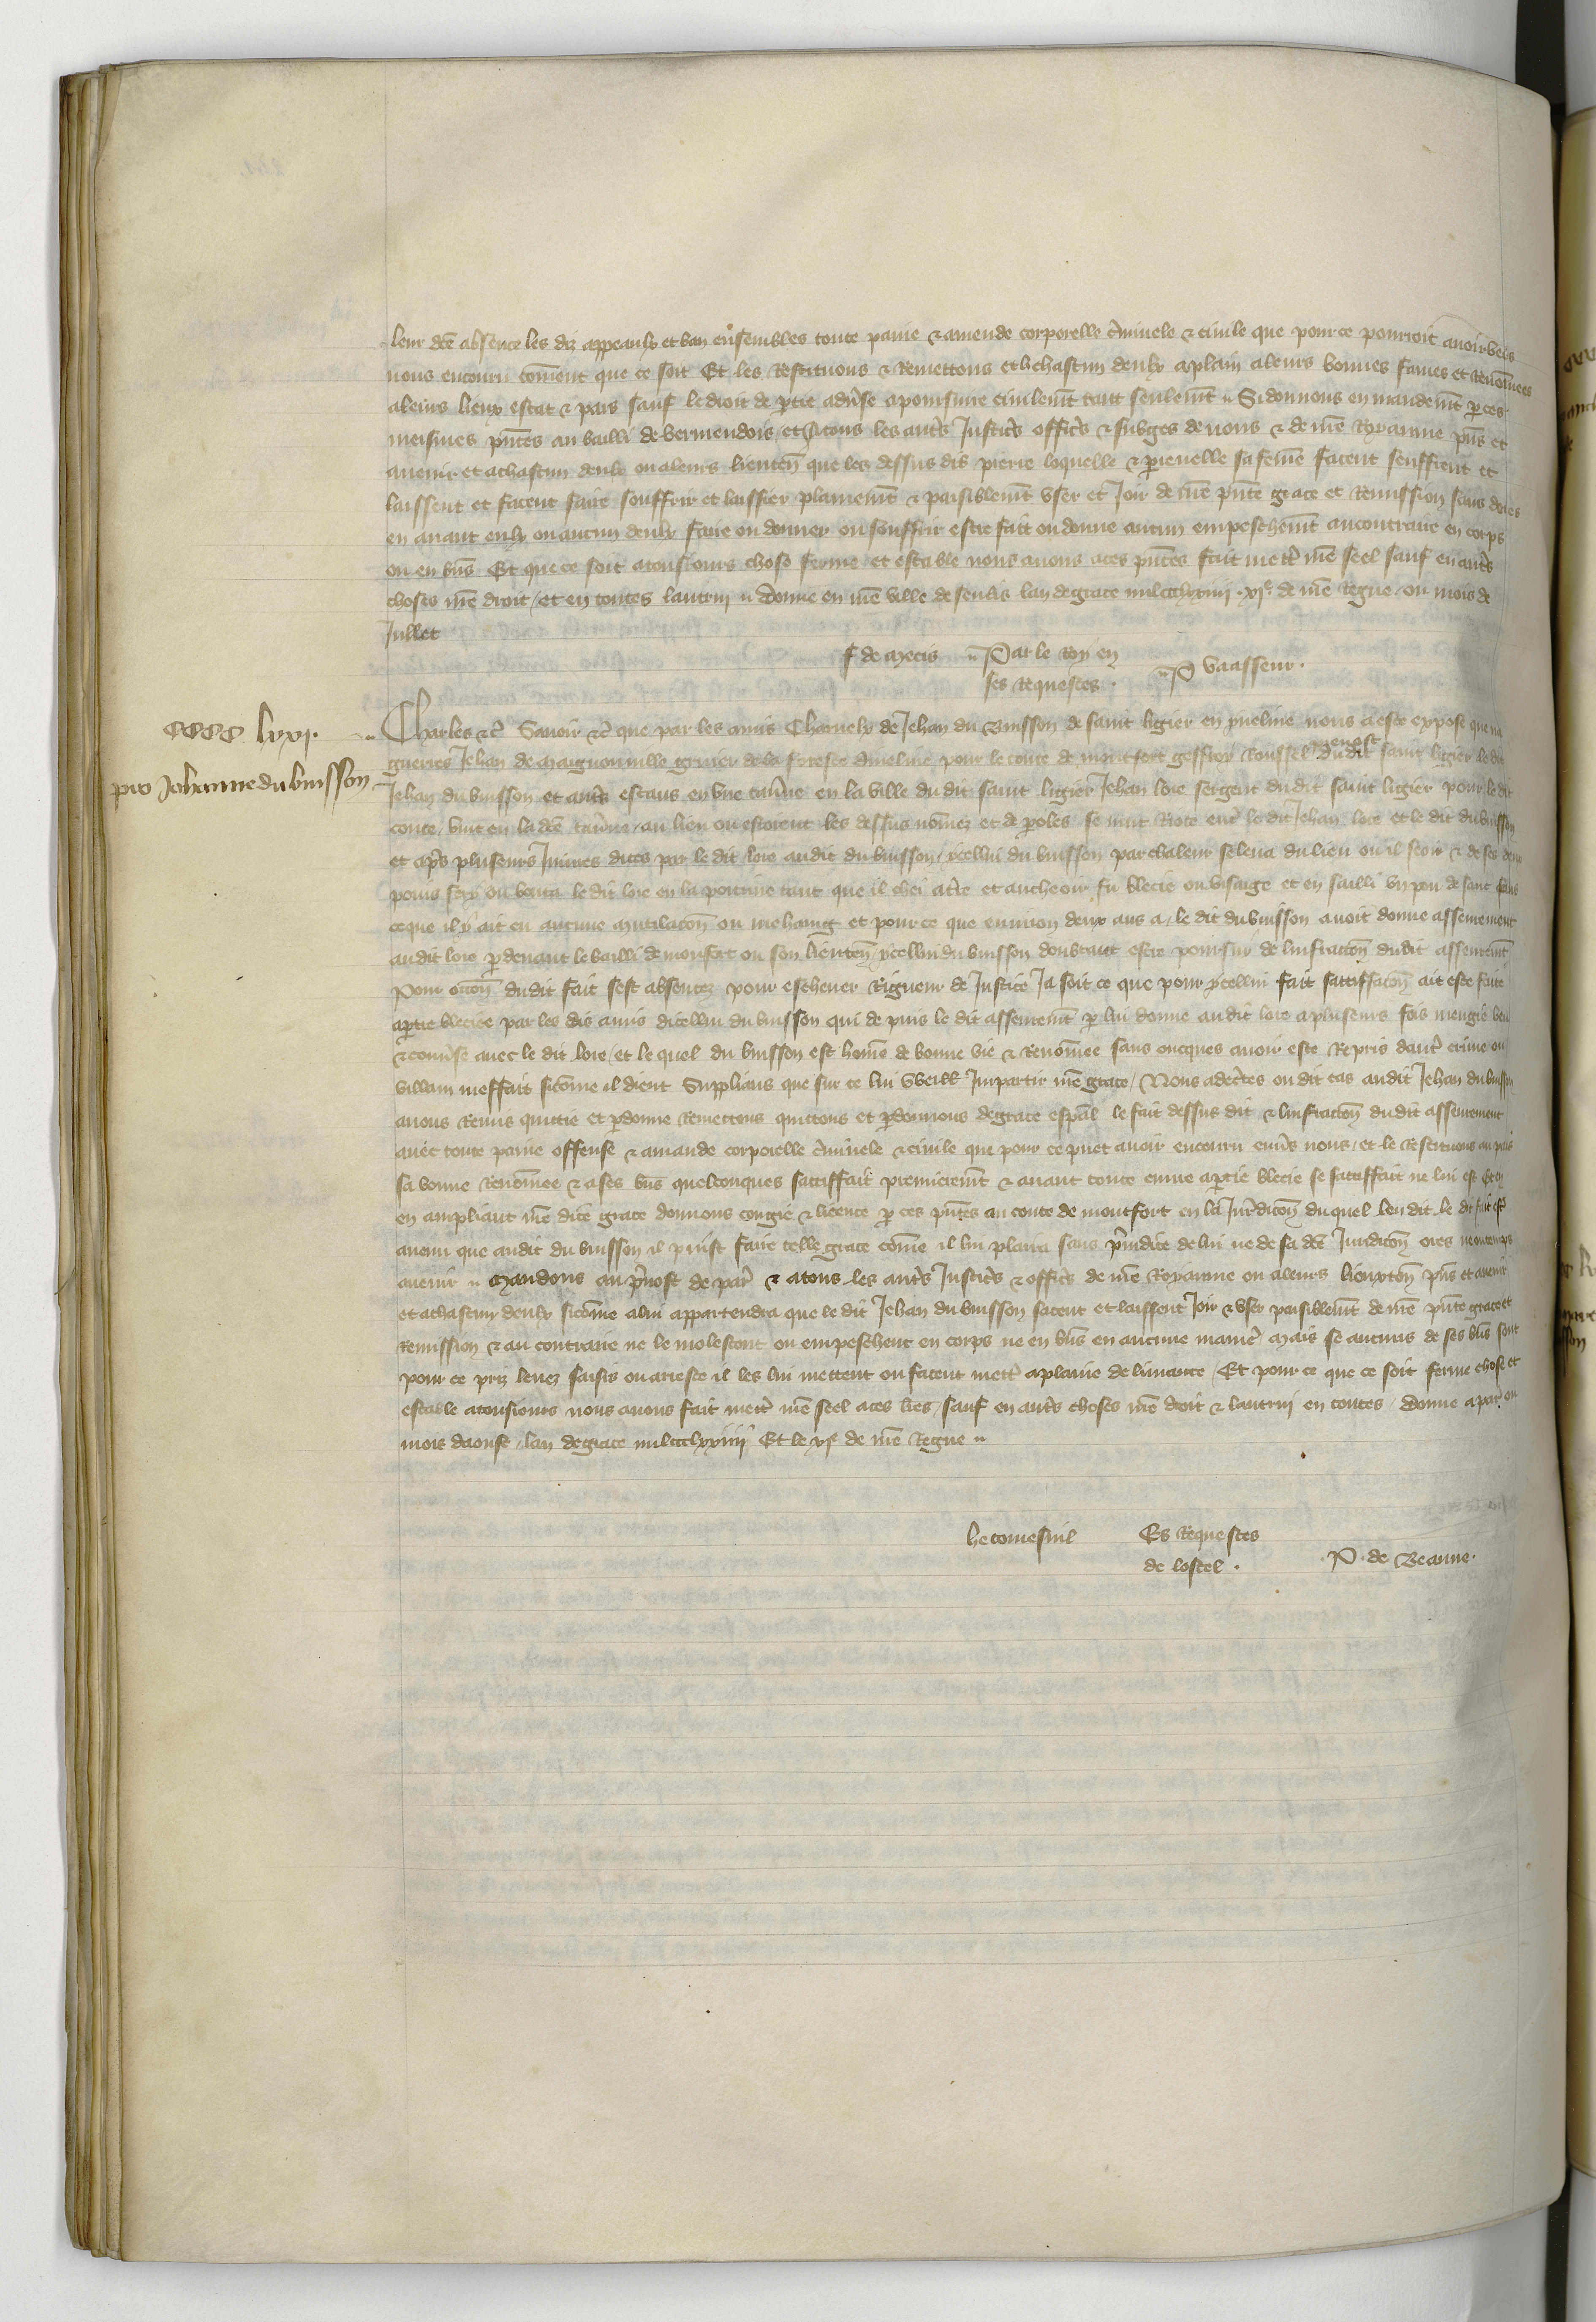 leur dce absence les diz appeaulx et ban ensembles toute paine & amende corporelle c'minele & civile que pour ce pourroit avoir vers
nous encouru coment que ce soit Et les Restituons & Remettons et chascun deulx aplain a leurs bonnes fames et Renomees
a leurs lieux estat & pais sauf le droit de ptie adv'se a poursuire civilemt tant seulemt Si donnons en mandemt p ces
meismes pntes au bailli de vermendois et a tous les autrs Justicrs officrs & subges de nous & de nre Royaume pns et
avenir et a chascun deulx ou a leurs lieuten que les dessus dis pierre loquelle & perenelle sa feme facent seuffrent et
laissent et facent faire souffrir et laissier plainemt & paisiblemt user et Joir de nre pnte grace et Remission sans dores
en avant eulx ou aucun deulx faire ou donner ou souffrir estre fait ou donne aucun empeschemt au contraire en corps
ou en bns Et que ce soit a tousiours chose ferme et estable nous avons a ces pntes fait mettr nre seel sauf en autrs
choses nre droit / et en toutes lautrui donne en nre ville de senlis lan de grace mil ccclxxiiii . xie de nre Regne / ou mois de
Jullet
f de Mecis Par le Roy en
ses Requestes . P Vaasseur .
cccc lxxi .
pro Johanne du buisson
Charles &c Savoir &c que par les amis Charnelx de Jehan du Buisson de saint ligier en yveline nous a este expose que na
gueires Jehan de Maignonville gruier de la forest dyveline pour le conte de montfort geffroy Roussel prevost du dit saint ligier le dit
Jehan du buisson et autrs estans en une tav'ne en la ville du dit saint ligier Jehan lore sergent du dit saint ligier pour le dit
conte / vint en la dce tav'ne / au lieu ou estoient les dessus nomez et de poles se mut Riote entr le dit Jehan lore et le dit du buisson
et aps pluseurs Iniures dites par le dit lore au dit du buisson / ycellui du buisson par chaleur se leva du lieu ou il seoit & de ses deux
poins fery ou bouta le dit lore en la poitrine tant que il chei a t're et au cheoir fu blecie ou visaige et en sailli un pou de sanc sans
ce que il y ait eu aucune mutilacon ou mehaing et pour ce que environ deux ans a / le dit du buisson avoit donne asseurement
au dit lore p devant le bailli de monfort ou son lieuten ycellui du buisson doubtant estre poursui de linfraction du dit asseuremt
Pour occon du dit fait sest absentez pour eschever Rigueur de Justice Ja soit ce que pour ycellui fait sattisfacon ait este faite
a ptie bleciee par les dis amis dicellui du buisson qui de puis le dit asseuremt p lui donne au dit lore a pluseurs fois mengie beu
& conv'se avec le dit lore / et le quel du buisson est home de bonne vie & Renomee sans oncques avoir este Repris dautr crime ou
villain meffait sicome il dient Supplians que sur ce lui vueill Impartir nre grace / Nous adecrtes ou dit cas au dit Jehan du buisson
avons Remis quittie et pdonne Remettons quittons et pdonnons de grace espal le fait dessus dit & linfraction du dit asseurement
avec toute paine offense & amande corporelle c'minele & civile que pour ce puet avoir encouru env's nous / et le Restituons au pais
sa bonne Renomee & a ses bns quelconques sattisffait premieremt & avant toute euvre a ptie blecie se sattiffait ne lui est
en ampliant nre dite grace donnons congie & licence p ces pntes au conte de montfort en la Jurdicon du quel len dit le dit fait est
avenu que au dit du buisson il puist faire telle grace come il lui plaira sans p'iudice de lui ne de sa dce Jurdicon ores ne ou temps
avenir Mandons au p'vost de par & a tous les autrs Justicrs & officrs de nre Royaume ou a leurs lieuxten pns et avenir
et a chascun deulx sicome a lui appartendra que le dit Jehan du buisson facent et laissent Joir & user paisiblemt de nre pnte grace et
Remission & au contraire ne le molestent ou empeschent en corps ne en bns en aucune manir Mais se aucuns de ses bns sont
pour ce priz levez saisis ou arreste il les lui mettent ou facent mettr a plaine delivrance / Et pour ce que ce soit ferme chose et
estable a tousiours nous avons fait mettr nre seel a ces lres / sauf en autrs choses nre droit & lautrui en toutes / donne a par ou
mois daoust / lan de grace mil ccclxxiiii Et le xie de nre Regne
hetomesnil Es Requestes
de lostel . P . de Beaune .